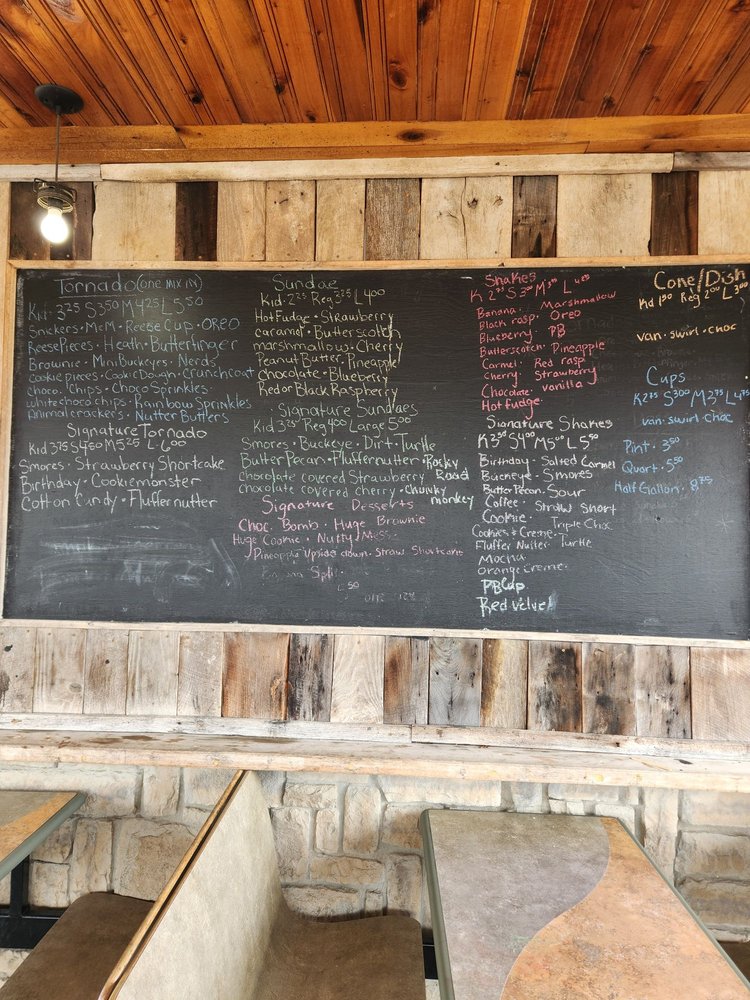 Tornado (one mix in)
Kid 3.25 S 3.50 M 4.25 L 5.50
Snickers · M&M · Reese Cup · OREO
ReesePieces · Heath · Butterfinger
Brownie · Mini Buckeyes · Nerds
Cookie pieces · Cookie Dough · Crunchcoat
Choco. Chips · Choco Sprinkles
white choco chips · Rainbow Sprinkles
Animal crackers · Nutter Butters
Signature Tornado
Kid 3.75 S 4.50 M 5.25 L 6.00
Smores · Strawberry Shortcake
Birthday · Cookiemonster
Cotton Candy · Fluffernutter
Sundae
Kid · 2.25 Reg 3.25 L 4.00
Hot Fudge · Strawberry
caramel · Butterscotch
marshmallow · Cherry
Peanut Butter · Pineapple
chocolate · Blueberry
Red or Black Raspberry
Signature Sundaes
Kid 3.25 Reg 4.00 Large 5.00
Smores · Buckeye · Dirt · Turtle
Butter Pecan · Fluffernutter · Rocky Road
chocolate covered Strawberry
chocolate covered cherry · Chunky monkey
Signature Desserts
Choc. Bomb · Huge Brownie
Huge Cookie · Nutty Mess
Pineapple Upside down · Straw. Shortcake
Split
Shakes
K 2.75 S 3.00 M 3.75 L 4.25
Banana · Marshmallow
Black rasp · Oreo
Blueberry · PB
Butterscotch · Pineapple
Carmel · Red rasp
Cherry · Strawberry
Chocolate · vanilla
Hot fudge ·
Signature Shakes
K 3.50 S 4.00 M 5.00 L 5.50
Birthday · Salted Carmel
Buckeye · Smores
Butter Pecan · Sour
Coffee · Straw Short
Cookie · Triple Choc
Cookies & Creme ·
Fluffer Nutter · Turtle
Mocha
Orange Creme ·
PB Cup
Red velvet
Cone/Dish
Kid 1.50 Reg 2.00 L 3.00
van · swirl · choc
Cups
K 2.25 S 3.00 M 3.75 L 4.25
van · swirl · choc
Pint · 3.50
Quart · 5.50
Half Gallon · 8.75